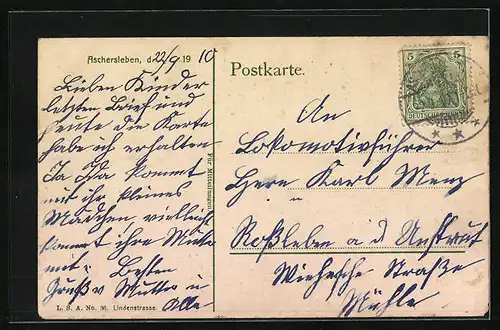 Aschersleben, d. 22/9 19 10
Lieben Kinder
letzten Brief und
heute die Karte
habe ich erhalten
Ja Ida kommt
mit ihr kleines
Mädchen vielleich
kommt ihre Mutte
mit. Besten
Gruß v Mutter u
Alle
L. S. A. No. 36. Lindenstrasse.
Für Mitteilungen.
Postkarte.
5 5
DEUTSCHES REICH
An
Lokomotivführer
Herrn Karl Menz
Roßleben a d Unstrut
Wiehesche Straße
Mühle